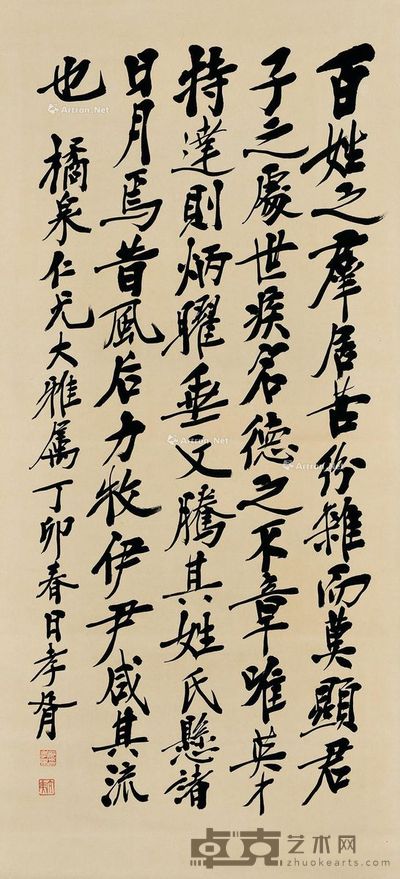 百姓之羣居苦紛雜而莫顯君
子之處世疾名德之不章唯英才
特達則炳曜垂文騰其姓氏懸諸
日月焉昔風后力牧伊尹咸其流
也
橘泉仁兄大雅屬丁卯春日孝胥
Artron.Net
Artron.Net
Artron.Net
Artron.Net
卓克艺术网
zhuokearts.com